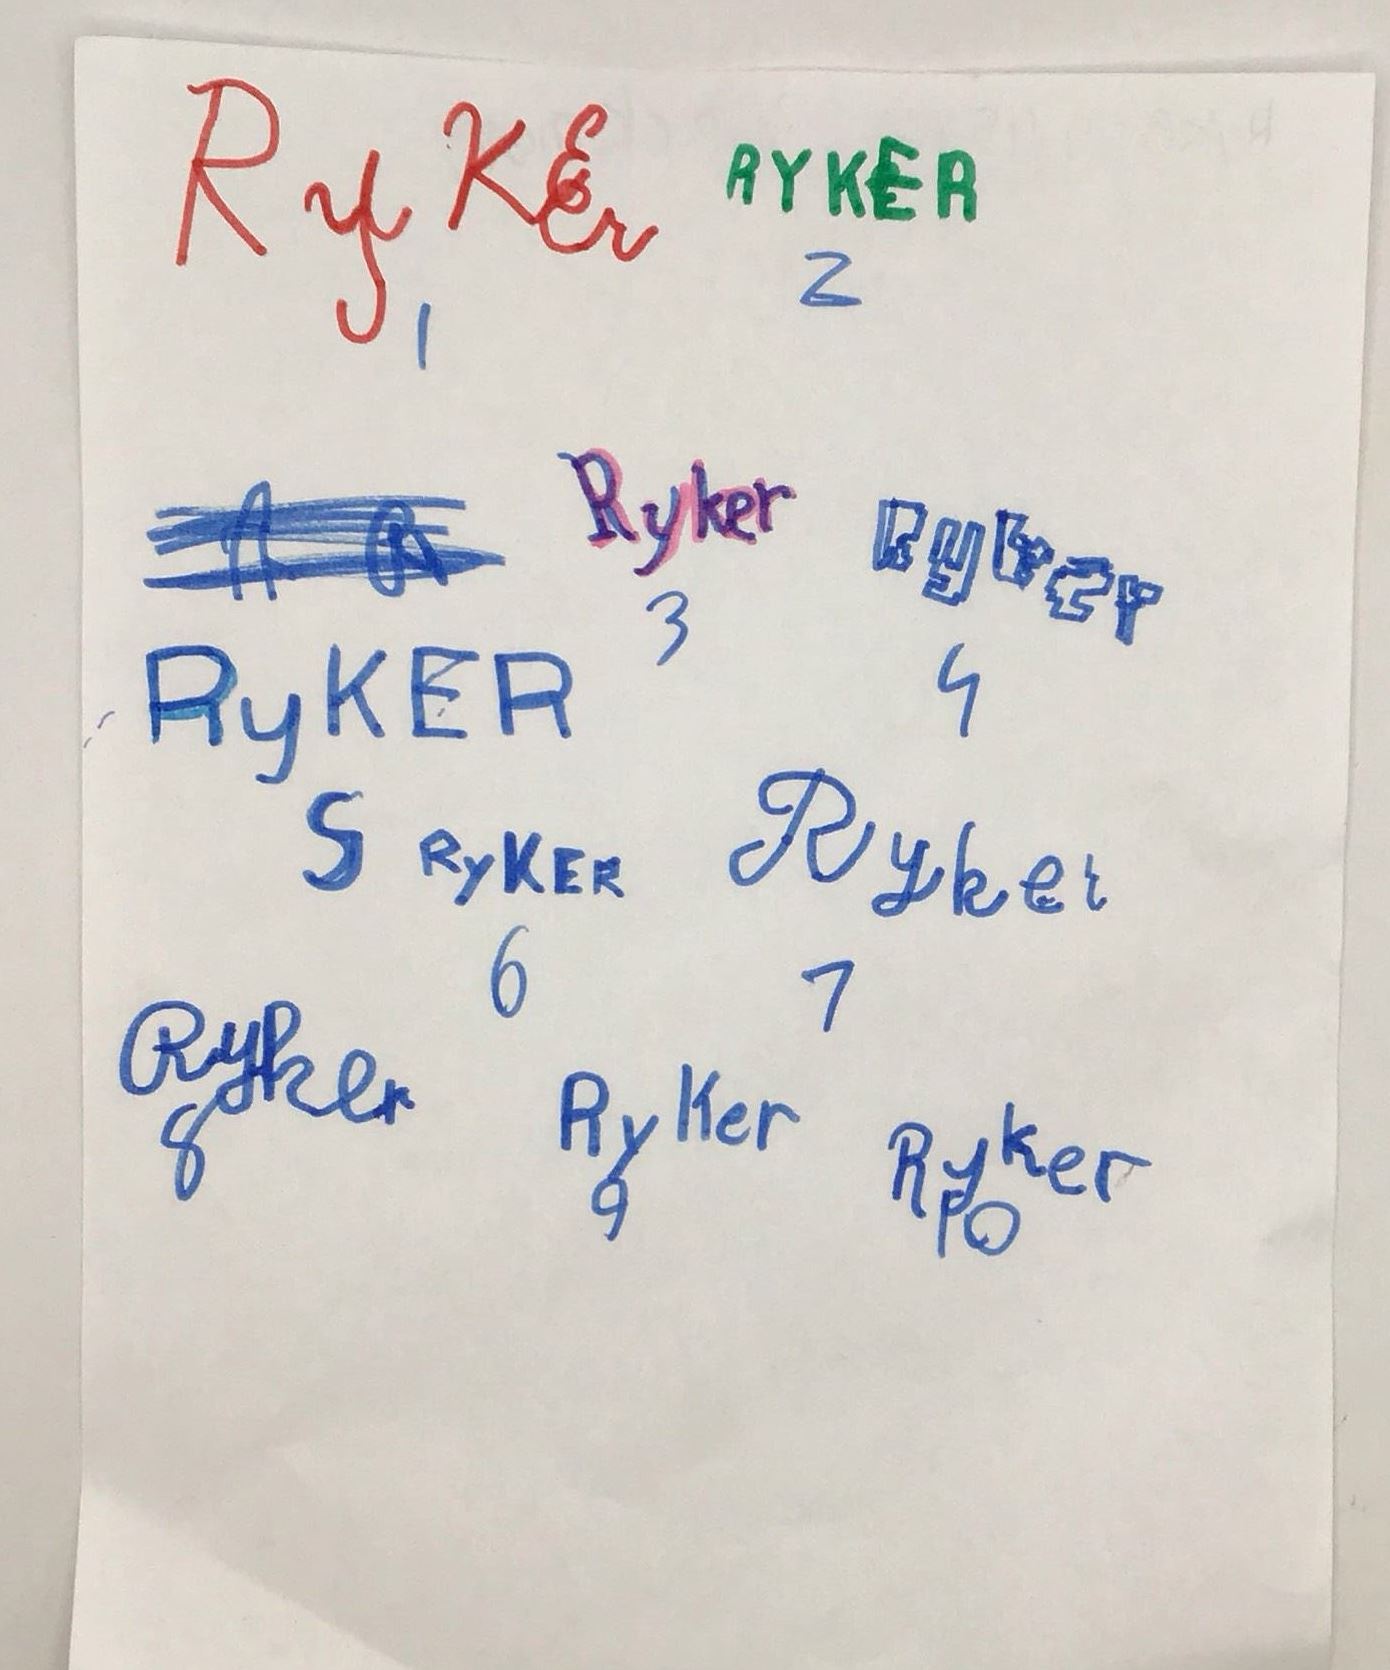 RyKEr RYKER
1 2
Ryker Ryker
3 4
RyKER
5 RyKER Ryker
6 7
Ryker RyKer Ryker
8 9 10